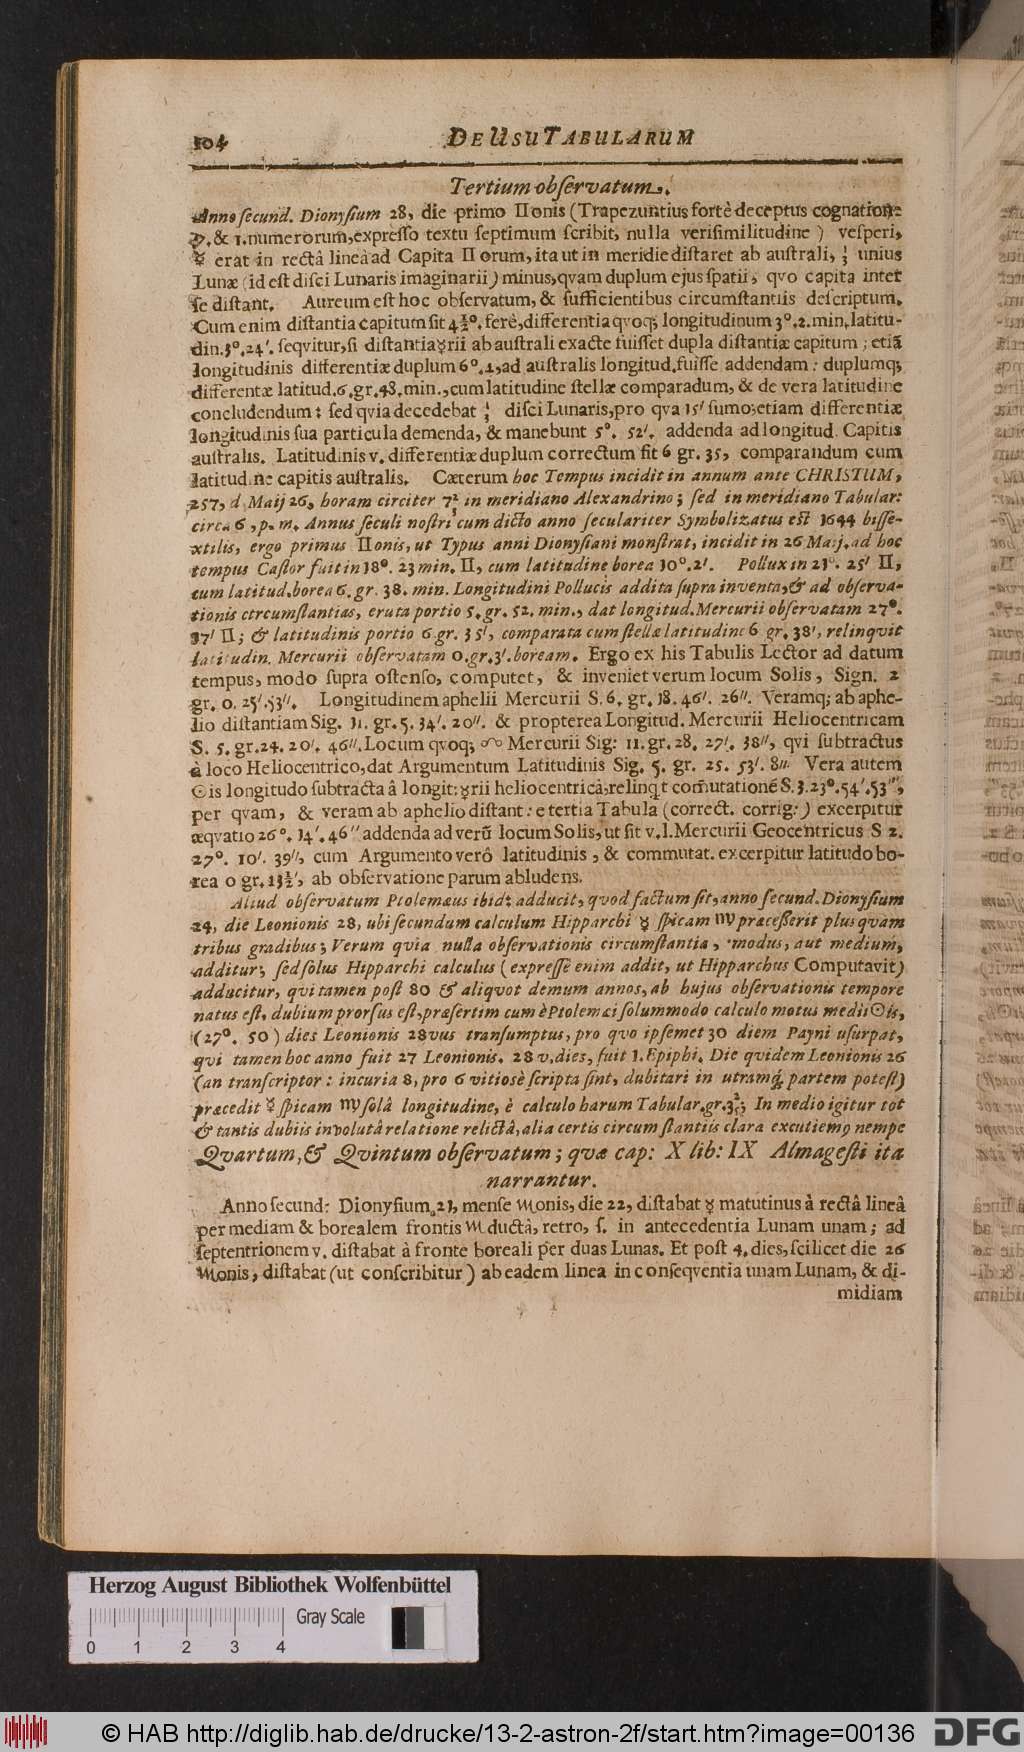 104 DE USU TABULARUM
Tertium observatum.
Anno secund. Dionysium 28, die primo ♊onis (Trapezuntius fortè deceptus cognatione
7. & 1. numerorum, expresso textu septimum scribit, nulla verisimilitudine) vesperi,
☿ erat in rectâ lineâ ad Capita ♊orum, ita ut in meridie distaret ab australi, ⅓ unius
Lunæ (id est disci Lunaris imaginarii) minus, qvam duplum ejus spatii, qvo capita inter
se distant. Aureum est hoc observatum, & sufficientibus circumstantiis descriptum.
Cum enim distantia capitum sit 4½°. ferè, differentia qvoq; longitudinum 3°. 2. min. latitu-
din. 3°. 24′. seqvitur, si distantia ☿rii ab australi exacte fuisset dupla distantiæ capitum; etiã
longitudinis differentiæ duplum 6°. 4, ad australis longitud. fuisse addendam: duplumq;
differentæ latitud. 6. gr. 48. min., cum latitudine stellæ comparadum, & de vera latitudine
concludendum: sed qvia decedebat ⅓ disci Lunaris, pro qva 15′ sumo; etiam differentiæ
longitudinis sua particula demenda, & manebunt 5°. 52′. addenda ad longitud. Capitis
australis. Latitudinis v. differentiæ duplum correctum fit 6 gr. 35, comparandum cum
latitudine capitis australis. Cæterum hoc Tempus incidit in annum ante CHRISTUM,
257, d. Maij 26, horam circiter 7½ in meridiano Alexandrino; sed in meridiano Tabular:
circa 6, p. m. Annus seculi nostri cum dicto anno seculariter Symbolizatus est 1644 bisse-
xtilis, ergo primus ♊onis, ut Typus anni Dionysiani monstrat, incidit in 26 Maij. ad hoc
tempus Castor fuit in 18°. 23 min. ♊, cum latitudine borea 10°. 2′. Pollux in 21°. 25′ ♊,
cum latitud. borea 6. gr. 38. min. Longitudini Pollucis addita supra inventa, & ad observa-
tionis ctrcumstantias, eruta portio 5. gr. 52. min., dat longitud. Mercurii observatam 27°.
17′ ♊; & latitudinis portio 6 gr. 35′, comparata cum stellæ latitudine 6 gr. 38′, relinqvit
latitudin. Mercurii observatam 0. gr. 3′. boream. Ergo ex his Tabulis Lector ad datum
tempus, modo supra ostenso, computet, & inveniet verum locum Solis, Sign. 2
gr. 0. 25′. 53″. Longitudinem aphelii Mercurii S. 6. gr. 18. 46′. 26″. Veramq; ab aphe-
lio distantiam Sig. 11. gr. 5. 34′. 20″. & propterea Longitud. Mercurii Heliocentricam
S. 5. gr. 24. 20′. 46″. Locum qvoq; ☊ Mercurii Sig: 11. gr. 28. 27′. 38″, qvi subtractus
à loco Heliocentrico, dat Argumentum Latitudinis Sig. 5. gr. 25. 53′. 8″. Vera autem
☉is longitudo subtracta â longit: ☿rii heliocentricâ, relinqt com̃utationẽ S. 3. 23°. 54′. 53″,
per qvam, & veram ab aphelio distant: e tertia Tabula (correct. corrig:) excerpitur
æqvatio 26°. 14′. 46″ addenda ad verũ locum Solis, ut fit v. l. Mercurii Geocentricus S 2.
27°. 10′. 39″, cum Argumento verô latitudinis, & commutat. excerpitur latitudo bo-
rea 0 gr. 13½′, ab observatione parum abludens.
Aliud observatum Ptolemæus ibid: adducit, qvod factum sit, anno secund. Dionysium
24, die Leonionis 28, ubi secundum calculum Hipparchi ☿ spicam ♍ præcesserit plus qvam
tribus gradibus; Verum qvia nulla observationis circumstantia, modus, aut medium,
additur; sed solus Hipparchi calculus (expresse enim addit, ut Hipparchus Computavit)
adducitur, qvi tamen post 80 & aliqvot demum annos, ab hujus observationis tempore
natus est, dubium prorsus est, præsertim cum è Ptolemæi solummodo calculo motus medii ☉is,
(27°. 50) dies Leonionis 28vus transumptus, pro qvo ipsemet 30 diem Payni usurpat,
qvi tamen hoc anno fuit 27 Leonionis. 28 v. dies, fuit 1. Epiphi. Die qvidem Leonionis 26
(an transcriptor: incuria 8, pro 6 vitiosè scripta sint, dubitari in utramq; partem potest)
præcedit ☿ spicam ♍ solâ longitudine, è calculo harum Tabular. gr. 3; In medio igitur tot
& tantis dubiis involutâ relatione relictâ, alia certis circumstantiis clara excutiemꝰ nempe
Qvartum, & Qvintum observatum; qvæ cap: X lib: IX Almagesti ita
narrantur.
Anno secund: Dionysium 21, mense ♏onis, die 22, distabat ☿ matutinus à rectâ lineâ
per mediam & borealem frontis ♏ ductâ, retro, s. in antecedentia Lunam unam; ad
septentrionem v. distabat â fronte boreali per duas Lunas. Et post 4. dies, scilicet die 26
♏onis, distabat (ut conscribitur) ab eadem linea in conseqventia unam Lunam, & di-
midiam
Herzog August Bibliothek Wolfenbüttel
Gray Scale
0 1 2 3 4
© HAB http://diglib.hab.de/drucke/13-2-astron-2f/start.htm?image=00136 DFG